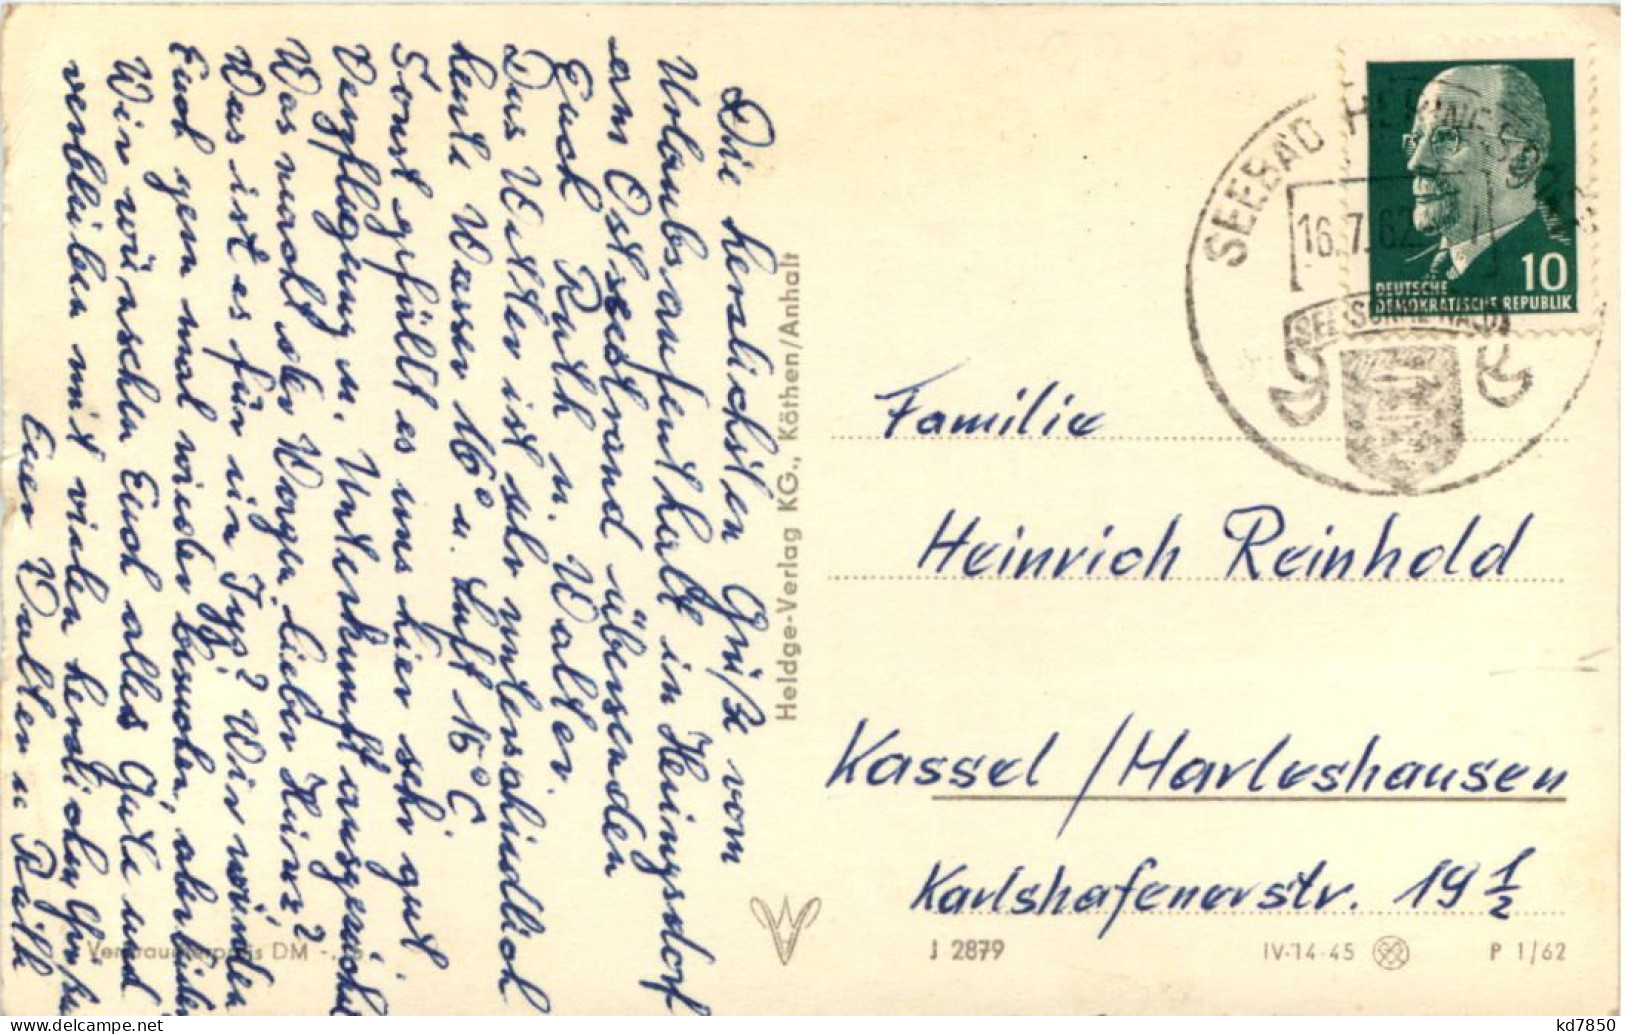 Die herzlichsten Grüße vom
Urlaubsaufenthalt in Heringsdorf
am Ostseestrand übersenden
Euch Ruth u. Walter.
Das Wetter ist sehr unterschiedlich
heute Wasser 16° u. Luft 16° C.
Sonst gefällt es uns hier sehr gut.
Verpflegung u. Unterkunft ausgezeichnet
Was macht der Vogel lieber Heinz?
Was ist es für ein Typ? Wir würden
Euch gern mal wieder besuchen, aber leider
Wir wünschen Euch alles Gute und
verbleiben mit vielen herzlichen Grüßen
Euer Walter u Ruth
Heldge-Verlag KG., Köthen/Anhalt
SEEBAD HERINGSDORF
16.7.62
10
DEUTSCHE
DEMOKRATISCHE REPUBLIK
Familie
Heinrich Reinhold
Kassel / Harleshausen
Karlshafenerstr. 19 ½
Verbraucherpreis DM
J 2879
IV-14-45
P 1/62
kd7850